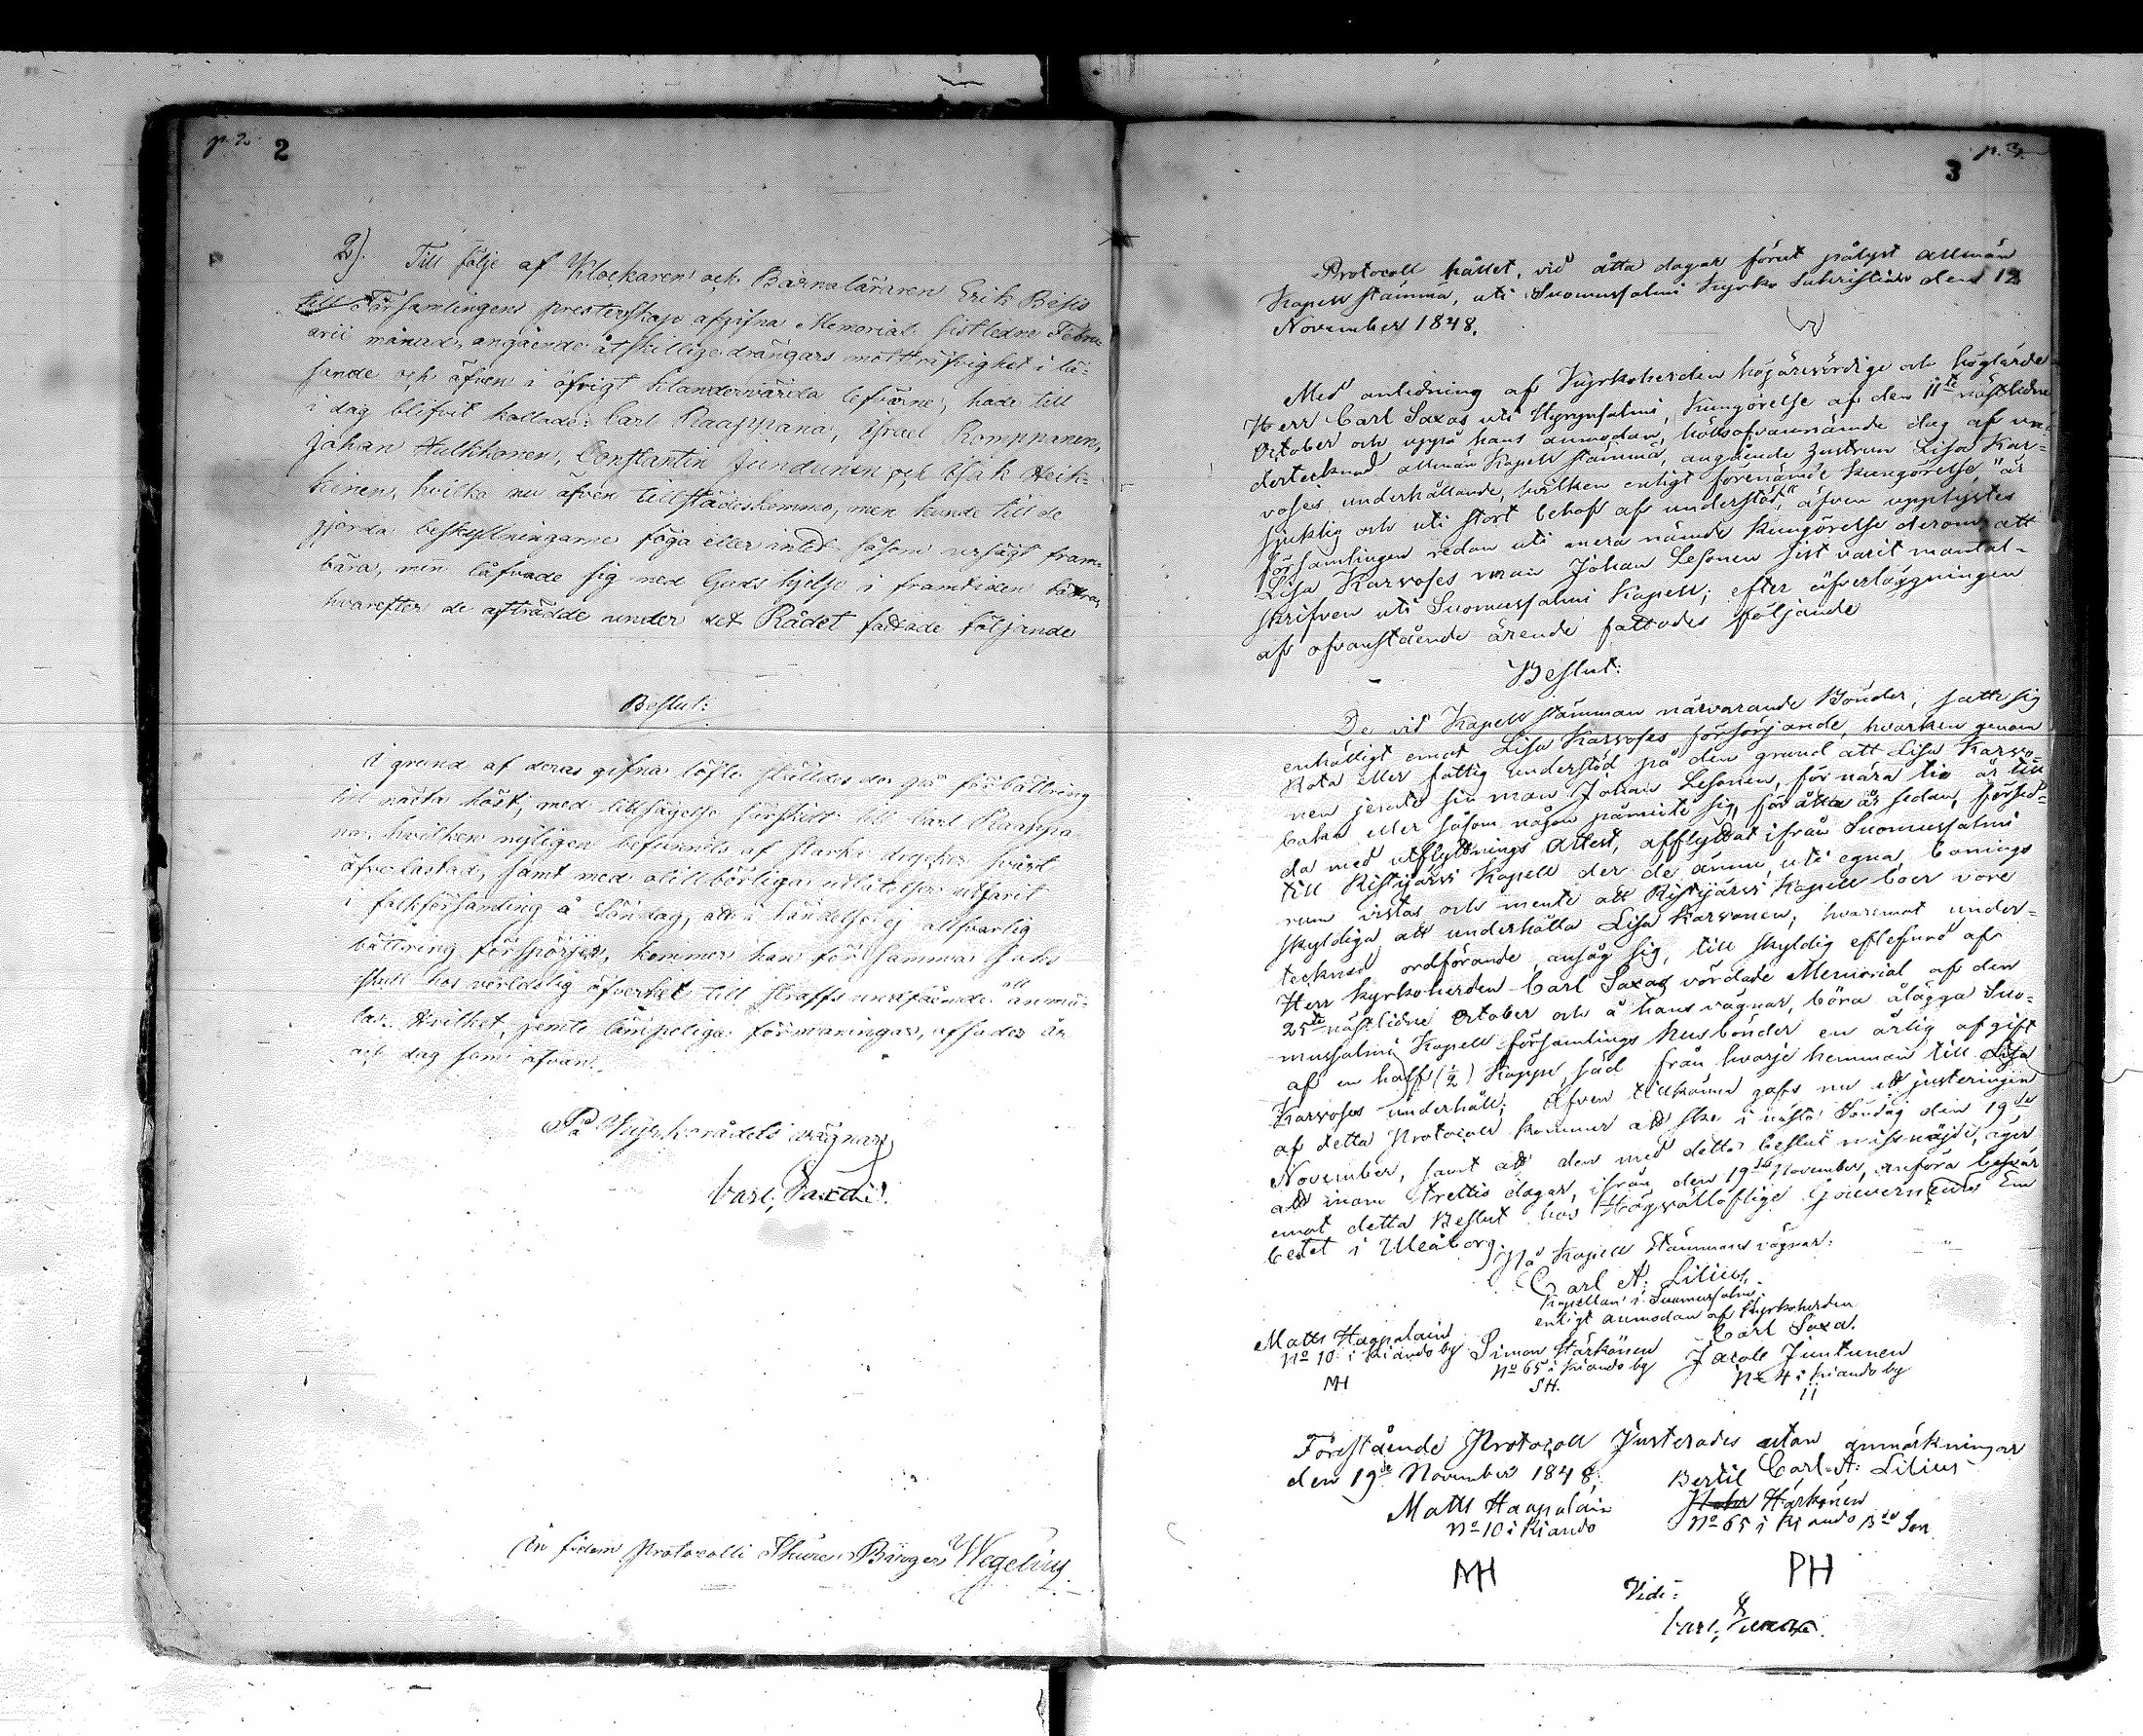 p. 2. 2
2). Till följe af Klockaren och Barnaläraren Erik
till Församlingens presterskap afgifna Memorial sistledne Febru-
arii månad, angående åtskillige drängars mottsträfvighet i lä-
sande och äfven i öfvrigt klandervärda lefverne, hade till
i dag blifvit kallade: Carl Raappana, Israel Romppanen,
Johan Hulkkonen, Constantin Jundunen och Isak Heik-
kinen, hvilka nu äfven tillstädeskommo, men kunde till de
gjorda beskyllningarne föga eller intet såsom ursägt fram-
bära, men låfvade sig med Guds hjelp i framtiden bättra,
hvarefter de afträdde under det Rådet fattade följande
Beslut:
I grund af deras gifna löfte ställdes de på förbättring
till nästa höst, med tillsägelse särskilt till Carl Raappa-
na, hvilken nyligen befunnits af starka drycker svårt
öfverlastad, samt med otillbörliga utlåtelser utfarit
i folkförsamling å Söndag, att i händelse ej allfvarlig
bättring förspörjes, kommer han för samma saks
skull hos verldslig öfverhet till straffs undfående att anmä-
las. Hvilket, jemte lämpeliga förmaningar, afsades år
och dag som ofvan.
På Kyrkorådets vägnar,
Carl Saxa.
In fidem Protocolli Thure Birger Wegelius
3 p. 3.
Protocoll hållet, vid åtta dagar förut pålyst allmän
Kapell stämma, uti Suomussalmi Kyrko Sakristia den 12
November 1848.
Med anledning af Kyrkoherden högärevördige och höglärde
Herr Carl Saxas uti Hyrynsalmi, Kungörelse af den 11te nästlidne
October och uppå hans anmodan, hölls ofvannämnde dag af un-
dertecknad allmän Kapell stämma, angående Hustrun Lisa Kar-
voses underhållande, hvilken enligt förenämde Kungörelse, "är
sjuklig och uti stort behof af understöd", äfven upplystes
församlingen redan uti mera nämde Kungörelse derom att
Lisa Karvoses man Johan Lesonen sist varit mantal-
skrifven uti Suomussalmi Kapell; efter öfverläggningen
af ofvanstående ärende fattades följande
Beslut:
De vid Kapell stämman närvarande Bönder, satte sig
enhälligt emot Lisa Karvoses försörjande, hvarken genom
Rota eller fattig understöd på den grund att Lisa Karvo-
nen jemte sin man Johan Lesonen, för nära tio år till-
baka eller såsom någon påminte sig, för åtta år sedan, försed-
da med utflyttnings Attest, afflyttat ifrån Suomussalmi
till Ristijärvi Kapell der de ännu, uti egna bonings
rum vistas och mente att Ristijärvi Kapell boer vore
skyldiga att underhålla Lisa Karvonen; hvaremot under-
tecknad ordförande ansåg sig, till skyldig efterfund af
Herr Kyrkoherden Carl Saxas vördade Memorial af den
25te nästlidne October och å hans vägnar, böra ålägga Suo-
mussalmi Kapell församlings husbönder en årlig afgift
af en half (½) Kappe, säd från hvarje hemman till Lisa
Karvoses underhåll; äfven tillkänna gafs nu att justeringen
af detta Protocoll kommer att ske i nästa Söndag den 19de
November, samt att den med detta beslut missnöjde, äger
att inom trettio dagar, ifrån den 19de November, anföra besvär
emot detta Beslut hos Högvällofliga Gouverneurs Em
betet i Uleåborg.
På Kapell Stämmans vägnar:
Carl A: Lilius,
Kapellan i Suomussalmi,
enligt anmodan af Kyrkoherden
Carl Saxa.
Matts Haapalain
No 10 i Kiando by
MH
Simon Härkönen
No 65 i Kiando by
SH.
Jacob Juntunen
No 4 i Kiando by
II
Förestående Protocoll Justerades utan anmärkningar
den 19de November 1848,
Carl A: Lilius
Matts Haapalain
No 10 i Kiando
MH
Bertil
Härkönen
No 65 i Kiando Bde Son
PH
Vidi:
Carl Saxa.